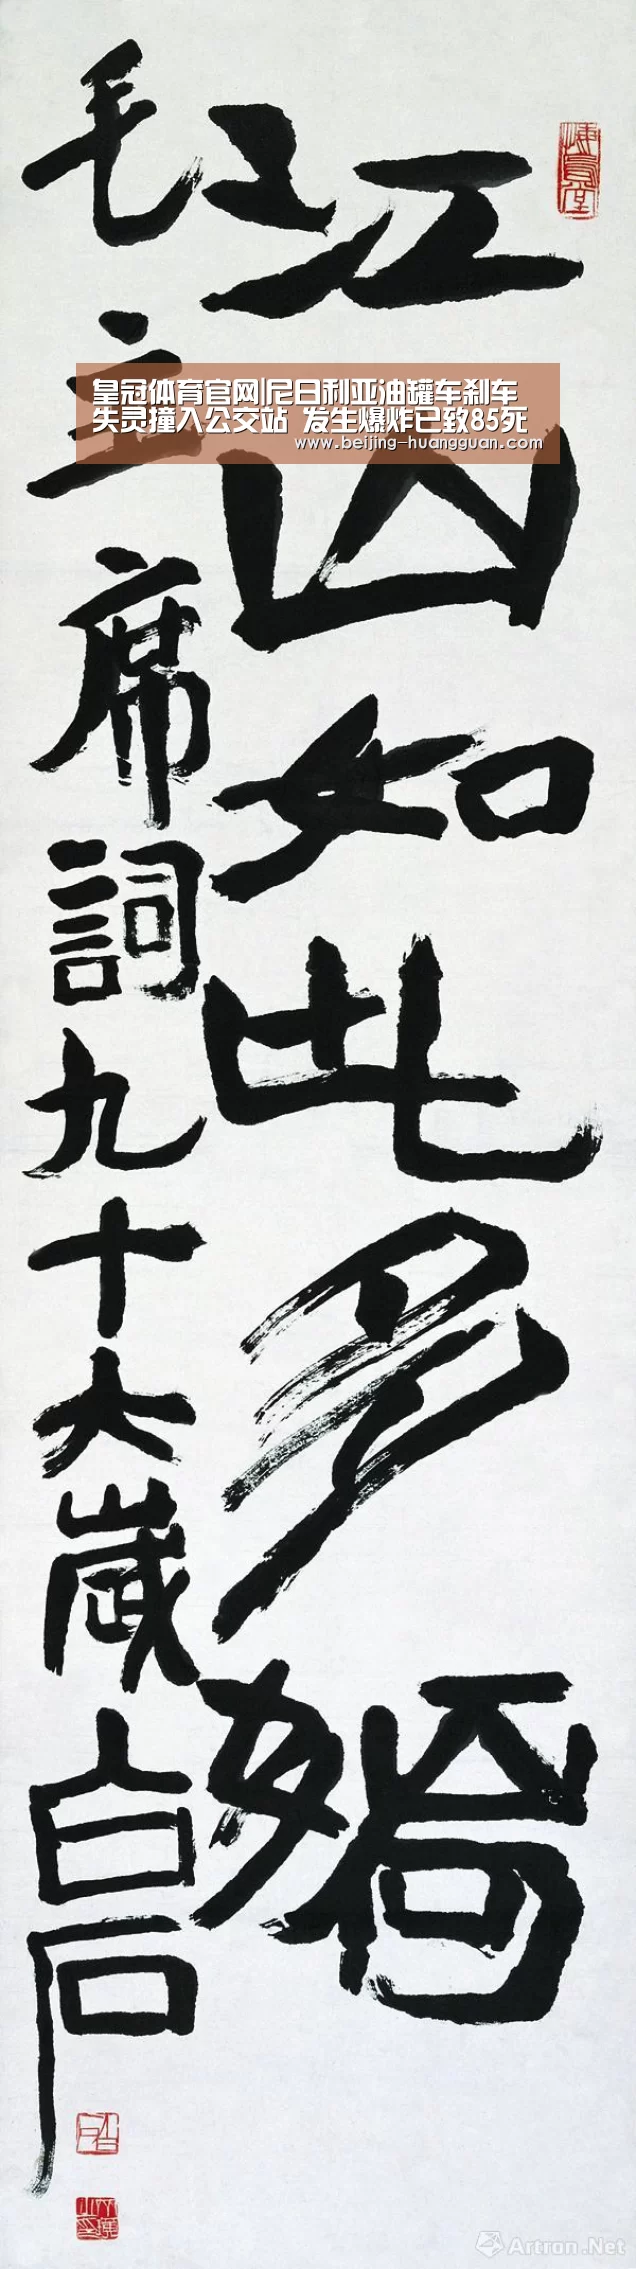 江山如此多嬌
毛主席詞九十六歲白石
皇冠体育官网|尼日利亚油罐车刹车
失灵撞入公交站 发生爆炸已致85死
www.beijing-huangguan.com
Artron.Net